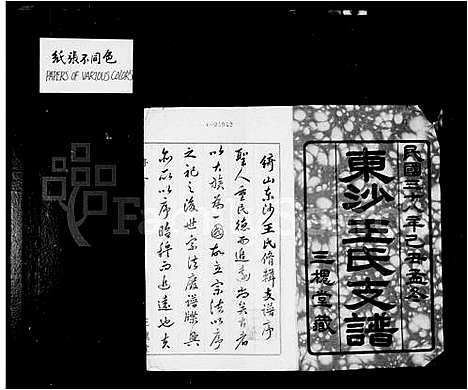 紙張不同色
PAPERS OF VARIOUS COLORS
民國三十八年己丑孟冬
東沙王氏支譜
三槐堂藏
錡山东沙王氏修輯支譜序
聖人重民德而追遠尚矣古者
以大族為一國故立宗法以序
之祀之後世宗法廢譜牒興
亦所以序昭穆而追遠也夫